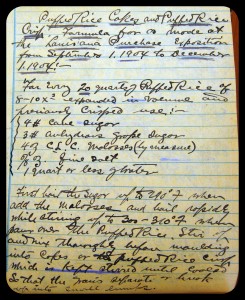 Puffed Rice Cakes and Puffed Rice
Crisp Formula for as made at
the Louisiana Purchase exposition
from September 1, 1904 to December
1, 1904:-
For every 20 quarts of Puffed Rice of
8-10x expanded in volume and
previously Crisped use:-
4# Cane Sugar
3# Anhydrous Grape Sugar
4 oz C.P.C. Molasses (by measure)
oz. fine salt
1 quart or less water
First boil the Sugar up to 290°F when
add the Molasses and boil rapidly
while stirring up to 300-310°F when
pour over the Puffed Rice Stir it
and mix thoroughly before moulding
into Cakes or Puffed Rice Crisp
which is kept stirred until cooled
so that the grains separate &
into small